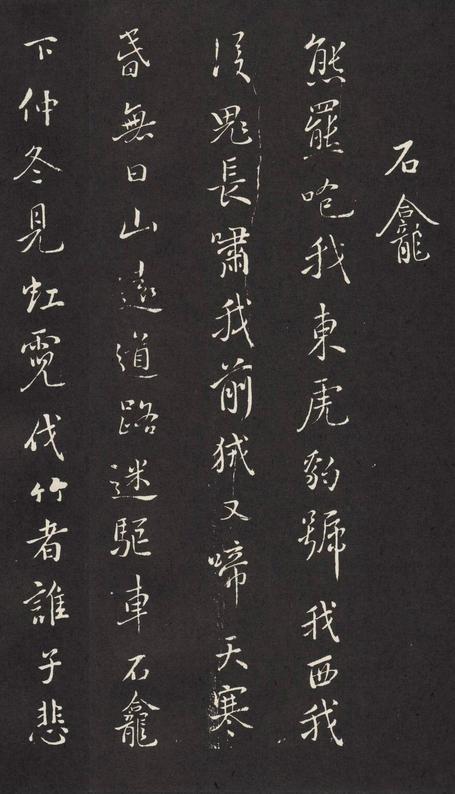 石龕
熊羆咆我東虎豹號我西我
後鬼長嘯我前狨又啼天寒
昬無日山遠道路迷驅車石龕
下仲冬見虹霓伐竹者誰子悲